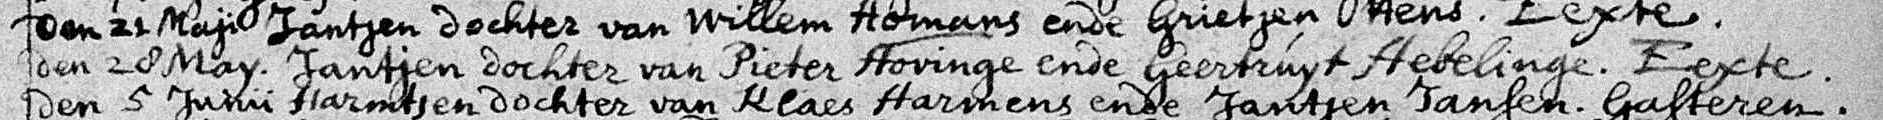 Den 21 Maji Jantjen dochter van Willem Homans ende Grietjen Ottens. Eexte.
den 28 May. Jantjen dochter van Pieter Hovinge ende Geertruyt Hebelinge. Eexte.
den 5 Junii Harmtjen dochter van Klaes Harmens ende Jantjen Jansen. Gasteren.